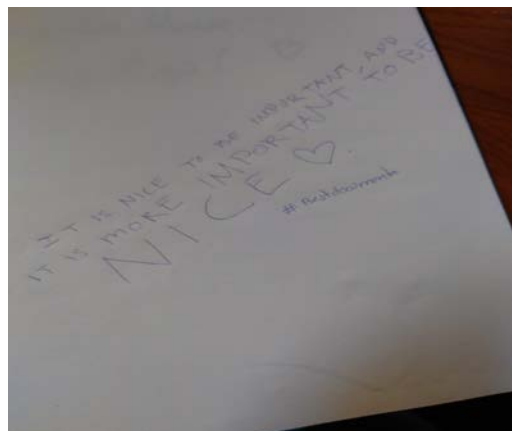 IT IS NICE TO BE IMPORTANT, AND
IT IS MORE IMPORTANT TO BE
NICE